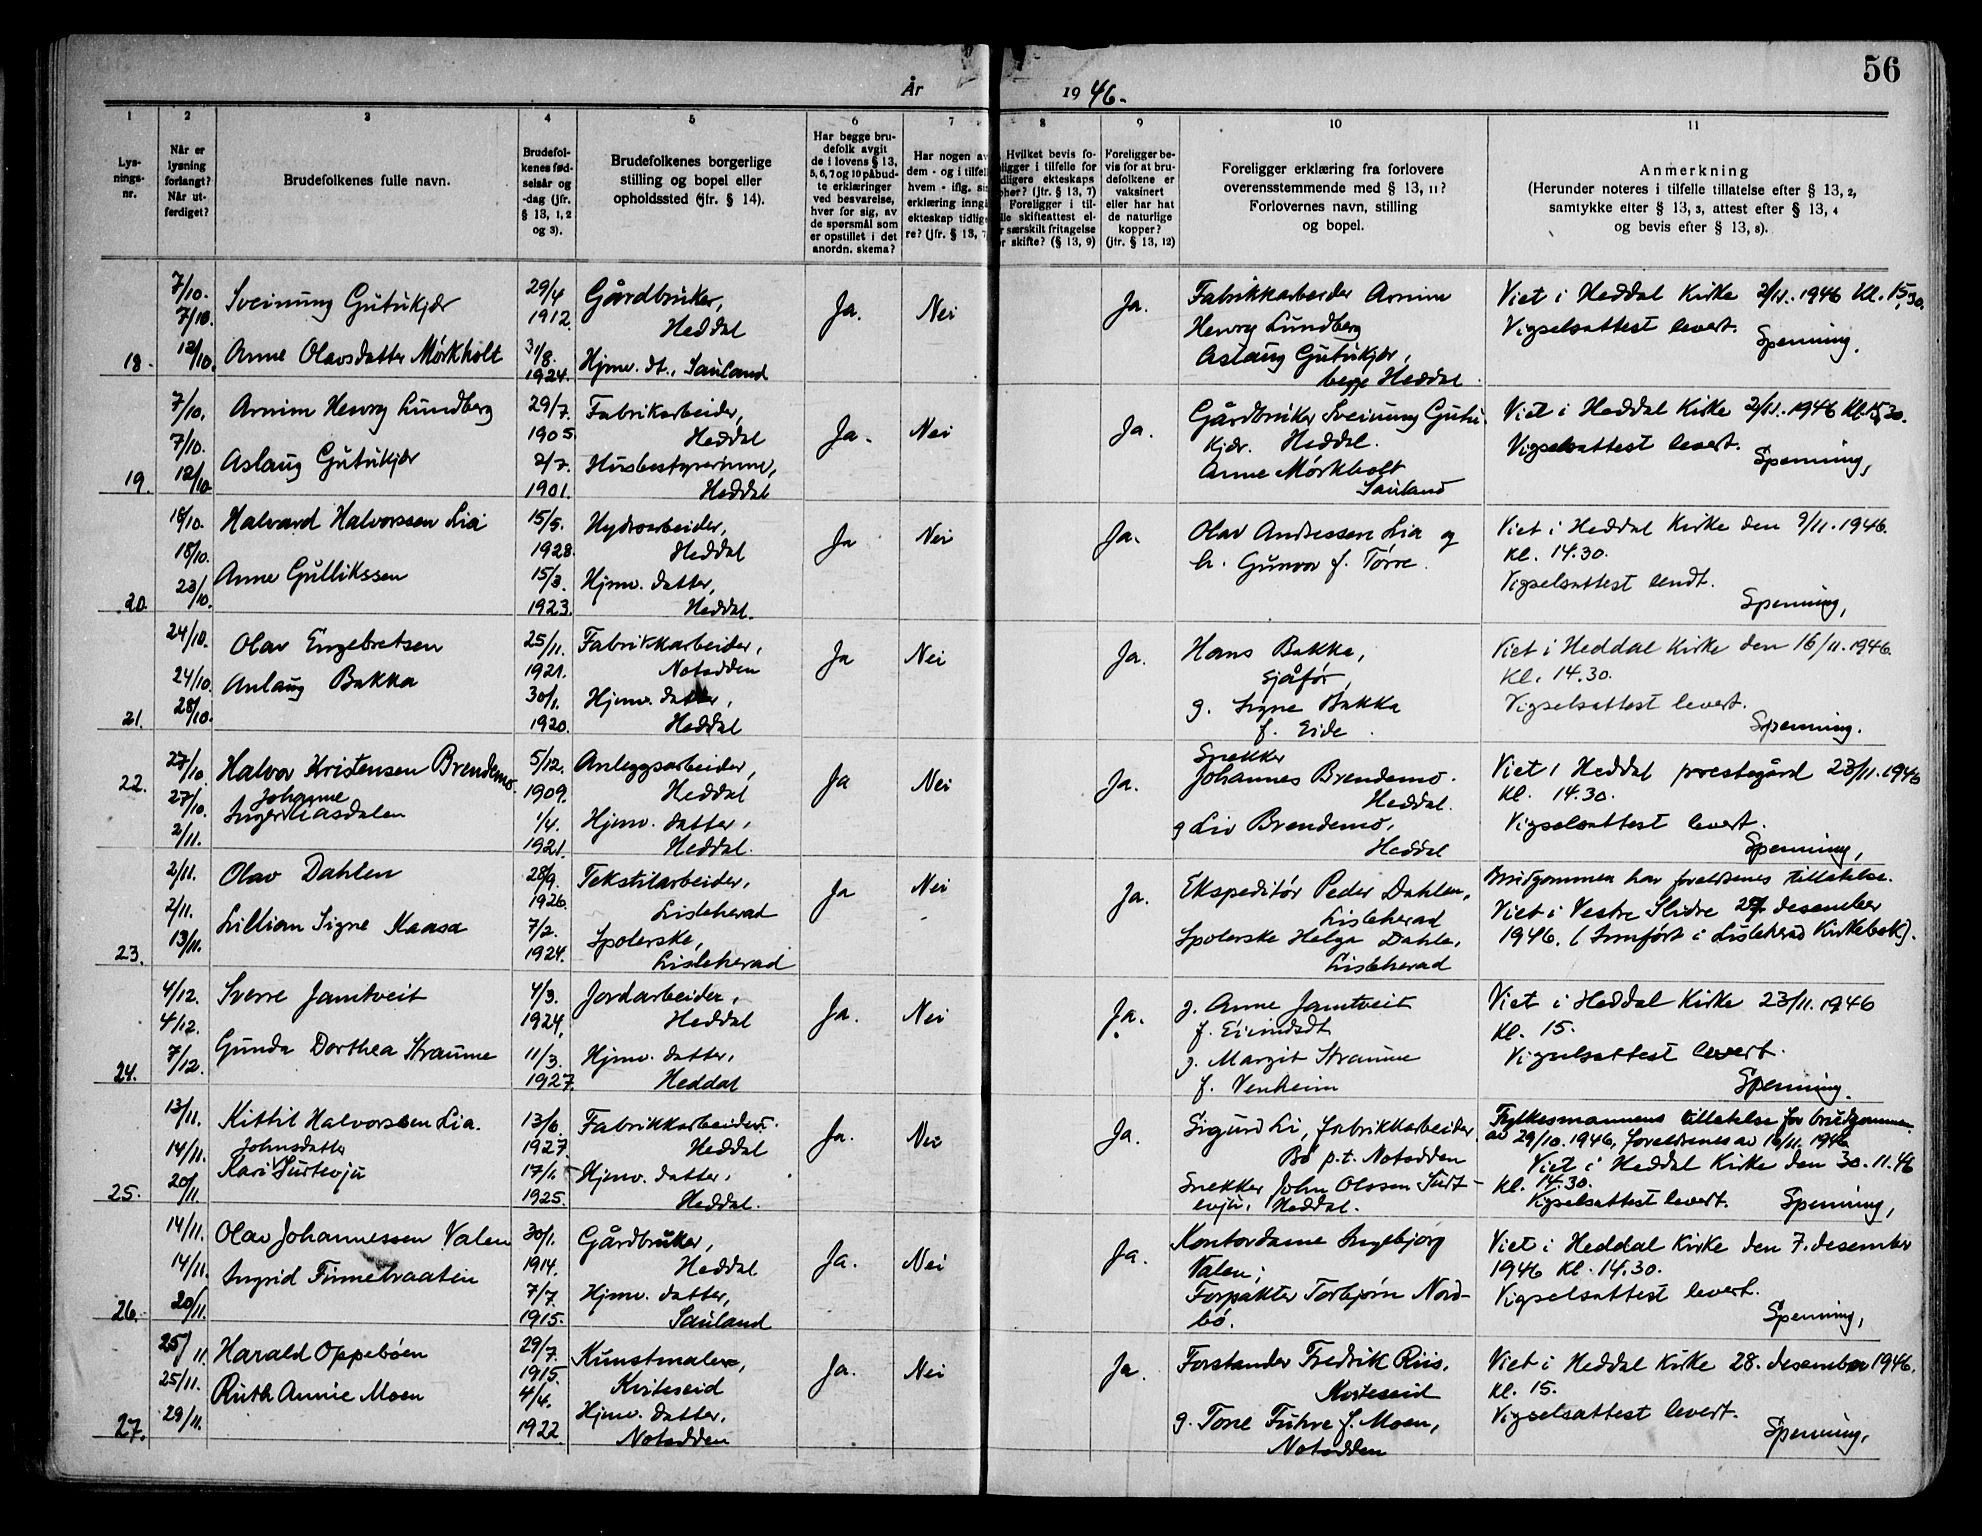 56
År 1946.
1 2 3 4 5 6 7 8 9 10 11
Lys-
nings-
nr.
Når er
lysning
forlangt?
Når ut-
ferdiget?
Brudefolkenes fulle navn.
Brudefol-
kenes fød-
selsår og
-dag (jfr.
§ 13, 1, 2
og 3).
Brudefolkenes borgerlige
stilling og bopel eller
opholdssted (jfr. § 14).
Har begge bru-
defolk avgit
de i lovens § 13,
5, 6, 7 og 10 påbud-
te erklæringer
ved besvarelse,
hver for sig, av
de spørsmål som
er opstillet i det
anordn. skema?
Har nogen av
dem - og i tilfelle
hvem - iflg. si
erklæring inngå
ekteskap tidlig
re? (jfr. § 13, 7
Hvilket bevis fo-
ligger i tilfelle for
dligere ekteskaps
pher? (jfr. § 13, 7)
Foreligger i til-
lle skifteattest el-
r særskilt fritagelse
or skifte? (§ 13, 9)
Foreligger be-
vis for at bru-
defolkene er
vaksinert
eller har hat
de naturlige
kopper?
(jfr. § 13, 12)
Foreligger erklæring fra forlovere
overensstemmende med § 13, 11?
Forlovernes navn, stilling
og bopel.
Anmerkning
(Herunder noteres i tilfelle tillatelse efter § 13, 2,
samtykke efter § 13, 3, attest efter § 13, 4
og bevis efter § 13, 8).
18.
7/10.
7/10.
12/10.
Sveinung Gutukjær
Anne Olavsdatter Mørkholt
29/4
1912.
31/8.
1924.
Gårdbruker,
Heddal
Hjmv. dt., Sauland
Ja.
Nei
Ja.
Fabrikkarbeider Arnim
Henry Lundberg
Aslaug Gutukjær,
begge Heddal.
Viet i Heddal Kirke 2/11.1946 Kl. 15,30.
Vigselsattest levert.
Spenning.
19.
7/10.
7/10.
12/10
Arnim Henry Lundberg
Aslaug Gutukjær
29/7.
1905.
2/7.
1901.
Fabrikarbeider,
Heddal
Husbestyrerinne,
Heddal
Ja.
Nei
Ja.
Gårdbruker Sveinung Gutu-
kjær. Heddal.
Anne Mørkholt
Sauland
Viet i Heddal Kirke 2/11.1946 Kl. 15,30.
Vigselsattest levert.
Spenning,
20.
18/10.
18/10.
23/10.
Halvard Halvorssen Lia
Anne Gullikssen
15/5.
1928.
15/3.
1923.
Hydroarbeider,
Heddal
Hjmv. datter,
Heddal.
Ja
Nei
Ja.
Olav Andressen Lia og
h. Gunvor f. Tørre.
Viet i Heddal Kirke den 9/11.1946.
Kl. 14.30.
Vigselsattest sendt.
Spenning,
21.
24/10.
24/10.
28/10.
Olav Engebretsen
Anlaug Bakka
25/11.
1921.
30/1.
1920.
Fabrikkarbeider,
Notodden
Hjmv. datter,
Heddal
Ja
Nei
Ja.
Hans Bakka,
sjåfør,
g. Signe Bakka
f. Eide.
Viet i Heddal Kirke den 16/11.1946.
Kl. 14.30.
Vigselsattest levert.
Spenning.
22.
27/10.
27/10.
2/11.
Halvor Kristensen Brendemo.
Johanne
Inger Aasdalen
5/12.
1909.
1/4.
1921.
Anleggsarbeider,
Heddal
Hjmv. datter,
Heddal.
Ja
Nei
Ja.
Snekker
Johannes Brendemo.
Heddal.
g Liv Brendemo,
Heddal
Viet i Heddal prestegård 23/11.1946
Kl. 14.30.
Vigselsattest levert.
Spenning,
23.
2/11.
2/11.
13/11.
Olav Dahlen
Lillian Signe Kaasa
28/9.
1926.
7/2.
1924.
Tekstilarbeider,
Lisleherad
Spolerske,
Lisleherad
Ja
Nei
Ja.
Ekspeditør Peder Dahlen,
Lisleherad
Spolerske Helga Dahle,
Lisleherad
Brudgommen har foreldrenes tillatelse.
Viet i Vestre Slidre 27. desember
1946. (Innført i Lisleherad Kirkebok).
24.
4/12.
4/12.
7/12.
Sverre Jamtveit
Gunda Dorthea Straume
4/3.
1924.
11/3.
1927.
Jordarbeider,
Heddal
Hjmv. datter,
Heddal
Ja.
Nei
Ja.
g. Anne Jamtveit
f.
g. Margit Straume
f. Venheim
Viet i Heddal Kirke 23/11.1946
Kl. 15.
Vigselsattest levert.
Spenning.
25.
13/11.
14/11.
20/11.
Kittil Halvorssen Lia.
Johnsdatter
Kari Surtevju
13/6.
1927.
17/1.
1925.
Fabrikkarbeider.
Heddal
Hjmv. datter,
Heddal.
Ja.
Nei
Ja.
Sigurd Li, fabrikkarbeider
Bø p.t. Notodden
Snekker John Olssen Surt-
evju, Heddal.
Fylkesmannens tillatelse for brudgommen
av 29/10.1946, foreldrenes av 10/11.1946
Viet i Heddal Kirke den 30.11.46
Kl. 14.30.
Vigselsattest levert. Spenning,
26.
14/11.
14/11.
20/11.
Olav Johannessen Valen
Ingrid Finnebraaten
30/1.
1914.
7/7.
1915.
Gårdbruker,
Heddal
Hjmv. datter,
Sauland
Ja.
Nei
Ja.
Kontordame Ingebjørg
Valen;
Forpakter Torbjørn Nord-
bø.
Viet i Heddal Kirke den 7. desember
1946 Kl. 14.30.
Vigselsattest levert.
Spenning,
27.
25/11.
25/11.
29/11.
Harald Oppebøen
Ruth Annie Moen
29/7.
1915.
4/4.
1922.
Kunstmaler,
Kviteseid
Hjmv. datter,
Notodden
Ja.
Nei
Ja.
Forstander Fredrik Riis,
Kviteseid
g. Tone Fuhre f. Moen,
Notodden
Viet i Heddal Kirke 28. desember 1946.
Kl. 15.
Vigselsattest levert.
Spenning,